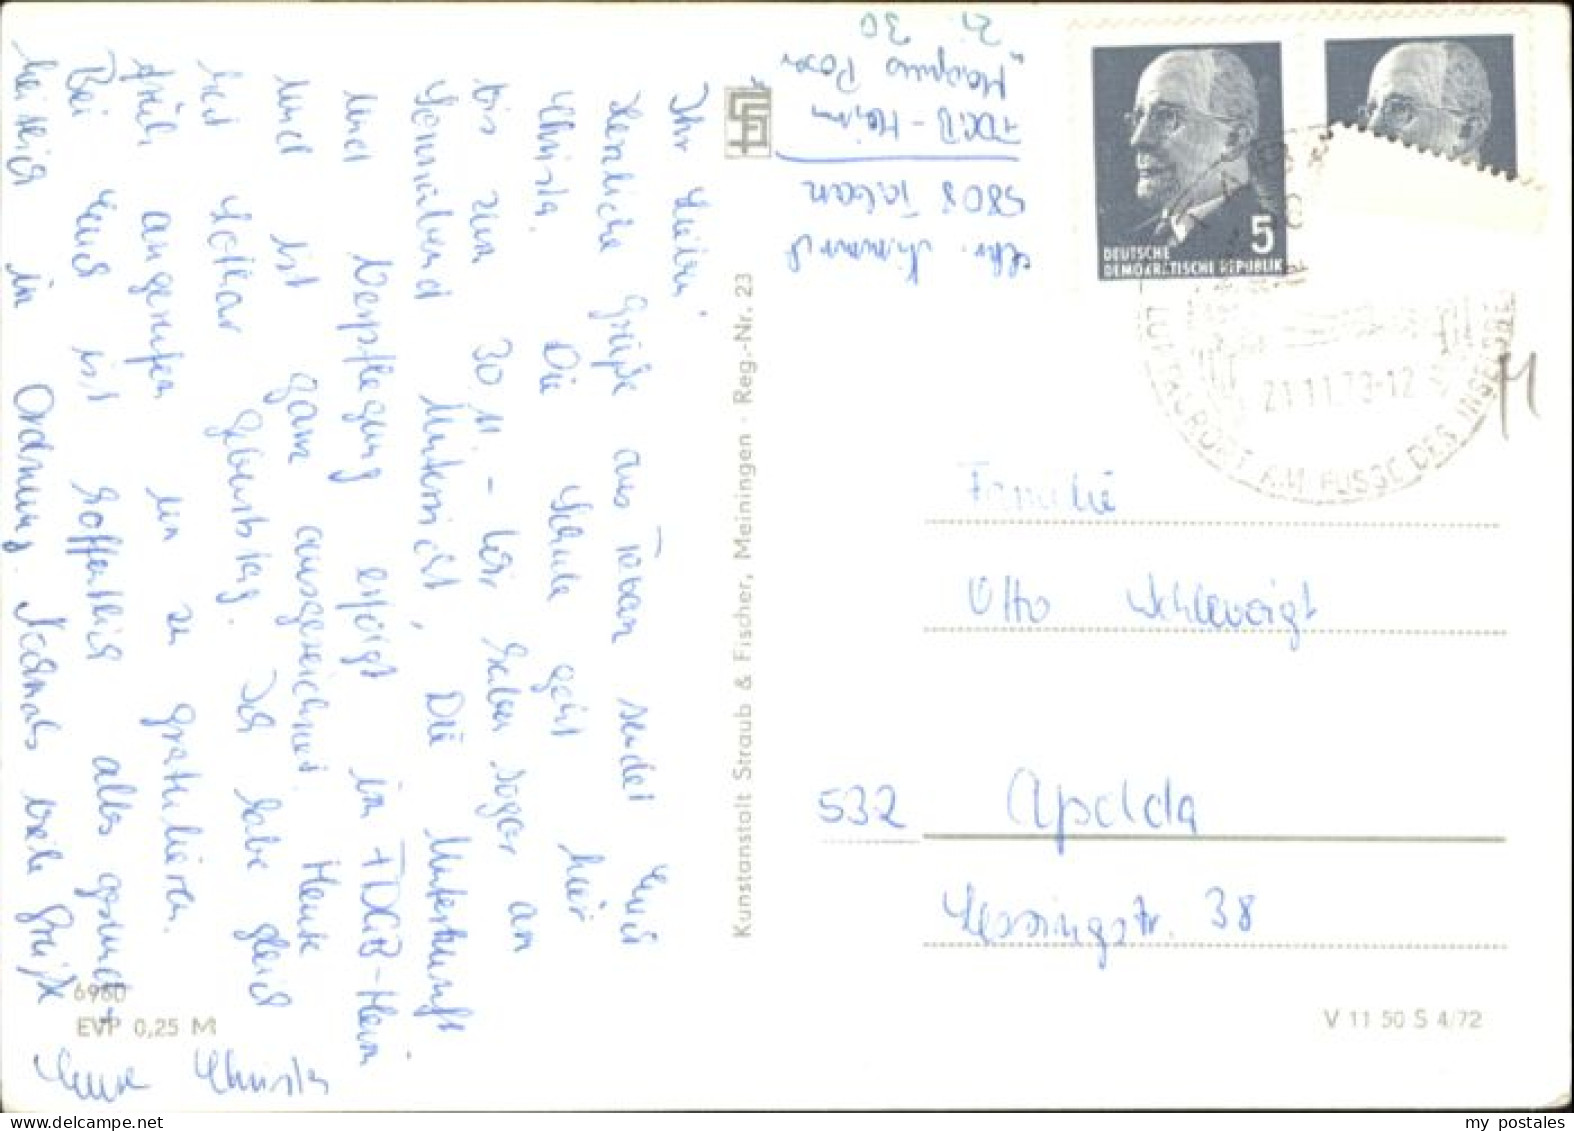 Ihr Lieben!
Herzliche Grüße aus Tabarz sendet Euch
Christa. Die Schule geht hier
bis zum 30.11. - wir haben sogar am
Sonnabend Unterricht. Die Unterkunft
und Verpflegung erfolgt im FDGB-Heim
und ist ganz ausgezeichnet. Heute
hat Lothar Geburtstag. Ich habe gleich
früh angerufen um zu gratulieren.
Bei Euch ist hoffentlich alles gesund +
in Ordnung. Nochmals viele Grüße
Eure Christa
Chr.
5808 Tabarz
FDGB-Heim
"Magnus Poser"
Zi. 30
Kunstanstalt Straub & Fischer, Meiningen · Reg.-Nr. 23
6960
EVP 0,25 M
5
DEUTSCHE
DEMOKRATISCHE REPUBLIK
LUFTKURORT AM FUSSE DES INSELBERG
21.11.73-12
Familie
Otto Schlevoigt
532 Apolda
Lessingstr. 38
V 11 50 S 4/72
my postales